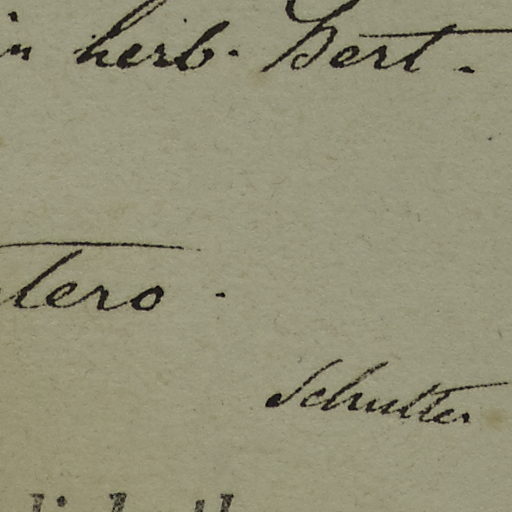 in herb. Bert.
tero.
Schutter